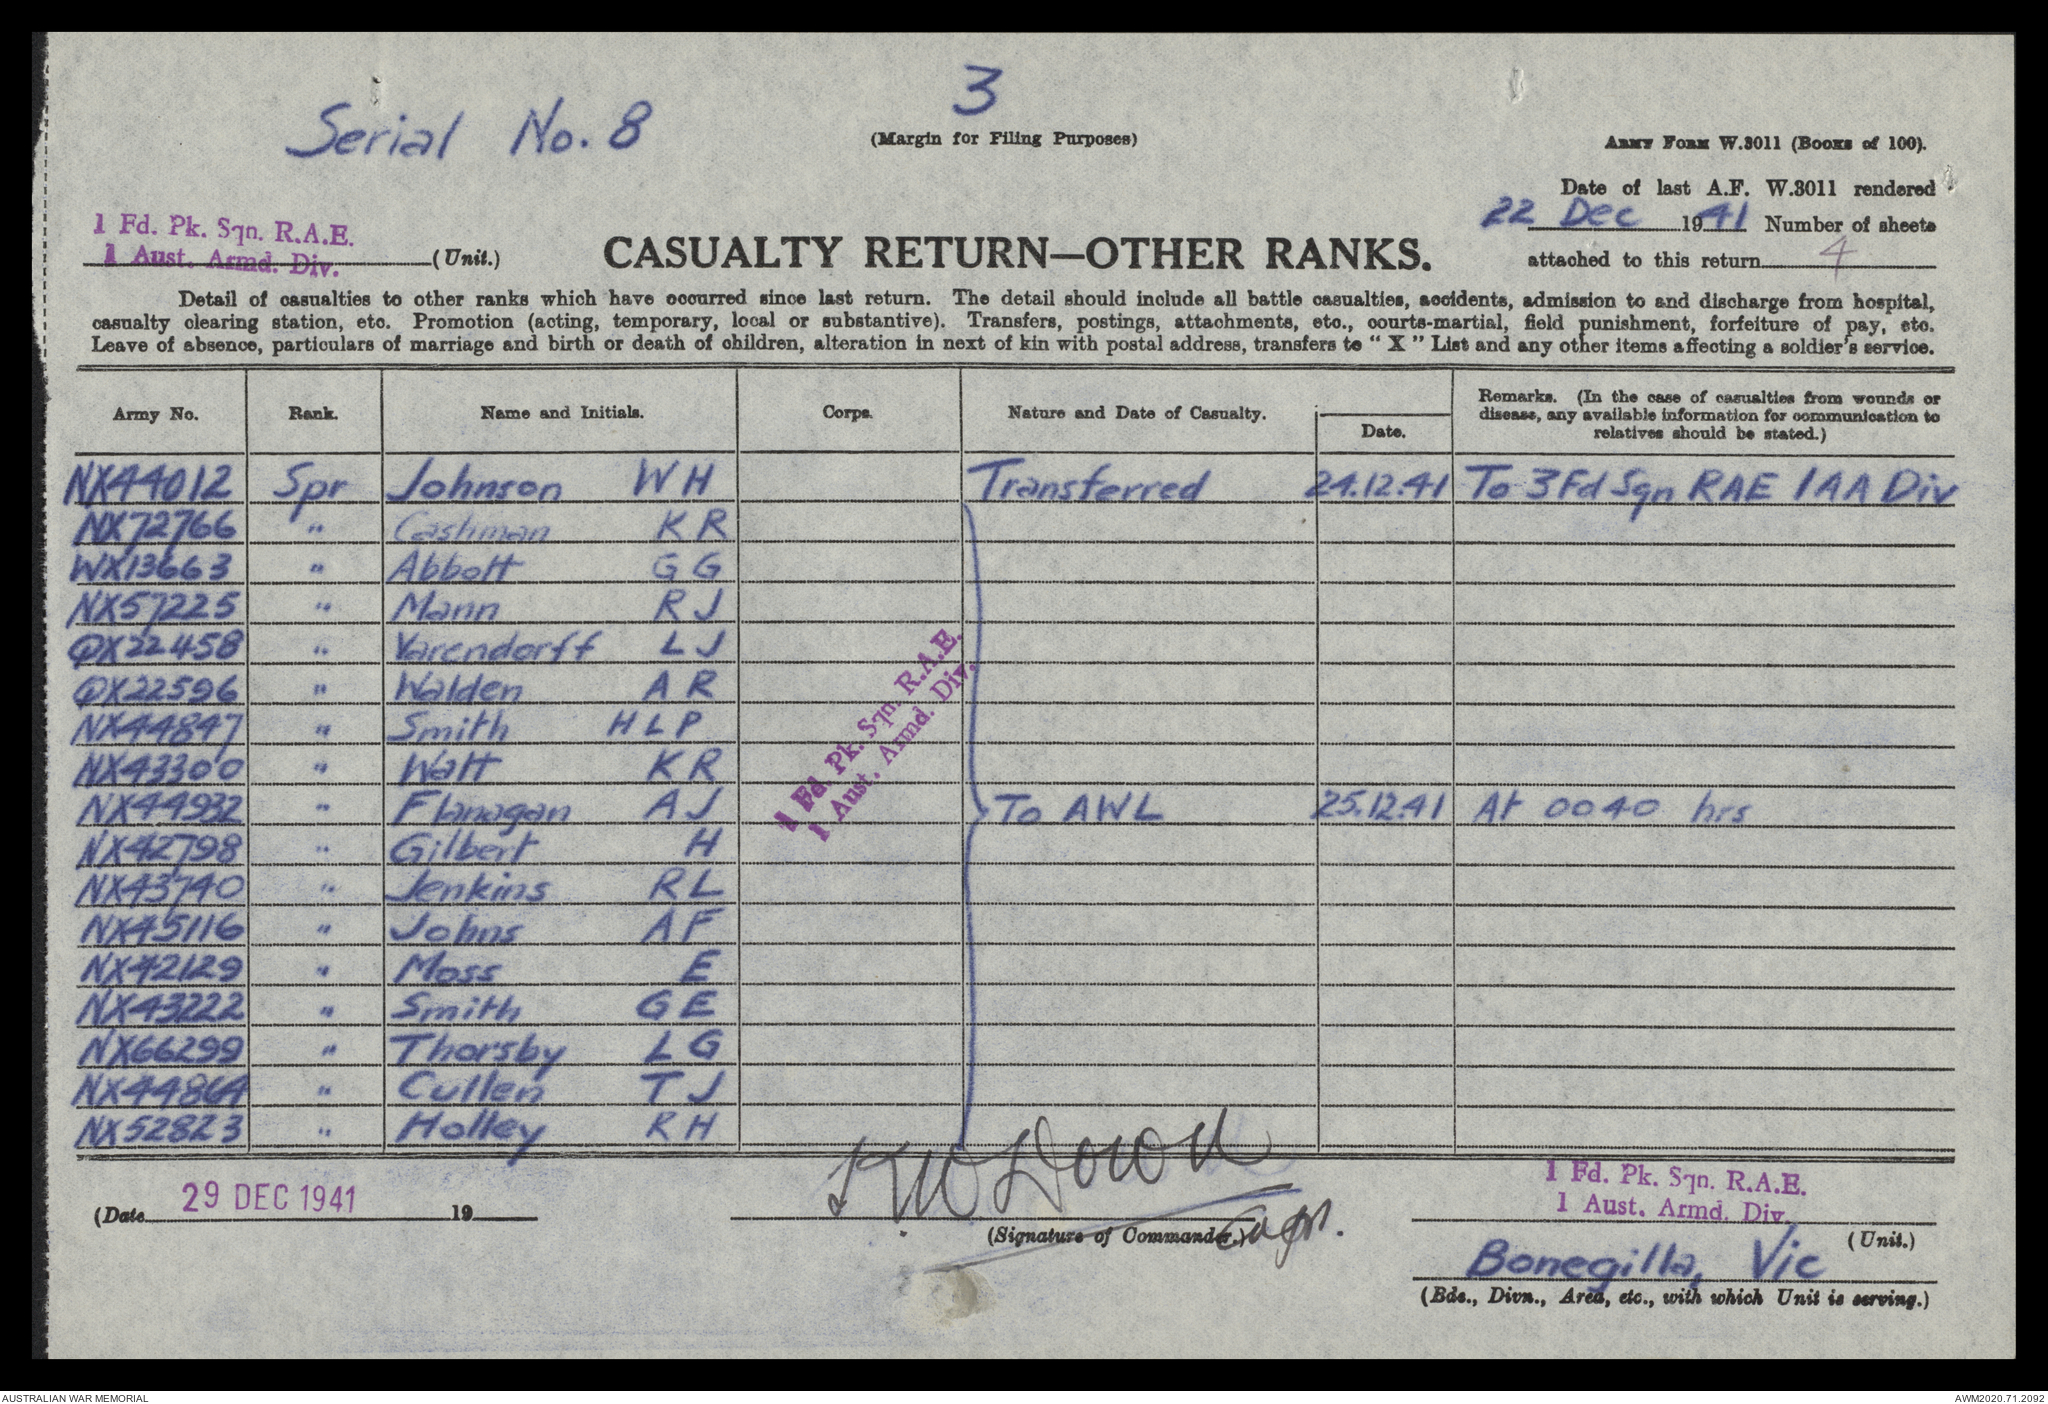 3
Serial No. 8
(Margin for Filing Purposes)
ARMY FORM W.3011 (BOOKS of 100).
Date of last A.F. W.3011 rendered
22 Dec 1941 Number of sheets
attached to this return 4
1 Fd. Pk. Sqn. R.A.E.
1 Aust. Armd. Div. (Unit.)
CASUALTY RETURN—OTHER RANKS.
Detail of casualties to other ranks which have occurred since last return. The detail should include all battle casualties, accidents, admission to and discharge from hospital,
casualty clearing station, etc. Promotion (acting, temporary, local or substantive). Transfers, postings, attachments, etc., courts-martial, field punishment, forfeiture of pay, etc.
Leave of absence, particulars of marriage and birth or death of children, alteration in next of kin with postal address, transfers to " X " List and any other items affecting a soldier's service.
Army No. Rank. Name and Initials. Corps. Nature and Date of Casualty. Date. Remarks. (In the case of casualties from wounds or
disease, any available information for communication to
relatives should be stated.)
NX44012 Spr Johnson W H Transferred 24.12.41 To 3 Fd Sqn RAE 1 AA Div
NX72766 " Cashman K R
WX13663 " Abbott G G
NX57225 " Mann R J
QX22458 " Varendorff L J
QX22596 " Walden A R
NX44847 " Smith H L P
NX43300 " Watt K R
NX44932 " Flanagan A J To AWL 25.12.41 At 0040 hrs
NX42798 " Gilbert H
NX43740 " Jenkins R L
NX45116 " Johns A F
NX42129 " Moss E
NX43222 " Smith G E
NX66299 " Thorsby L G
NX44864 " Cullen T J
NX52823 " Holley R H
1 Fd. Pk. Sqn. R.A.E.
1 Aust. Armd. Div.
(Date 29 DEC 1941 19
(Signature of Commander.) Capt.
1 Fd. Pk. Sqn. R.A.E.
1 Aust. Armd. Div.
(Unit.)
Bonegilla, Vic
(Bde., Divn., Area, etc., with which Unit is serving.)
AUSTRALIAN WAR MEMORIAL
AWM2020.71.2092